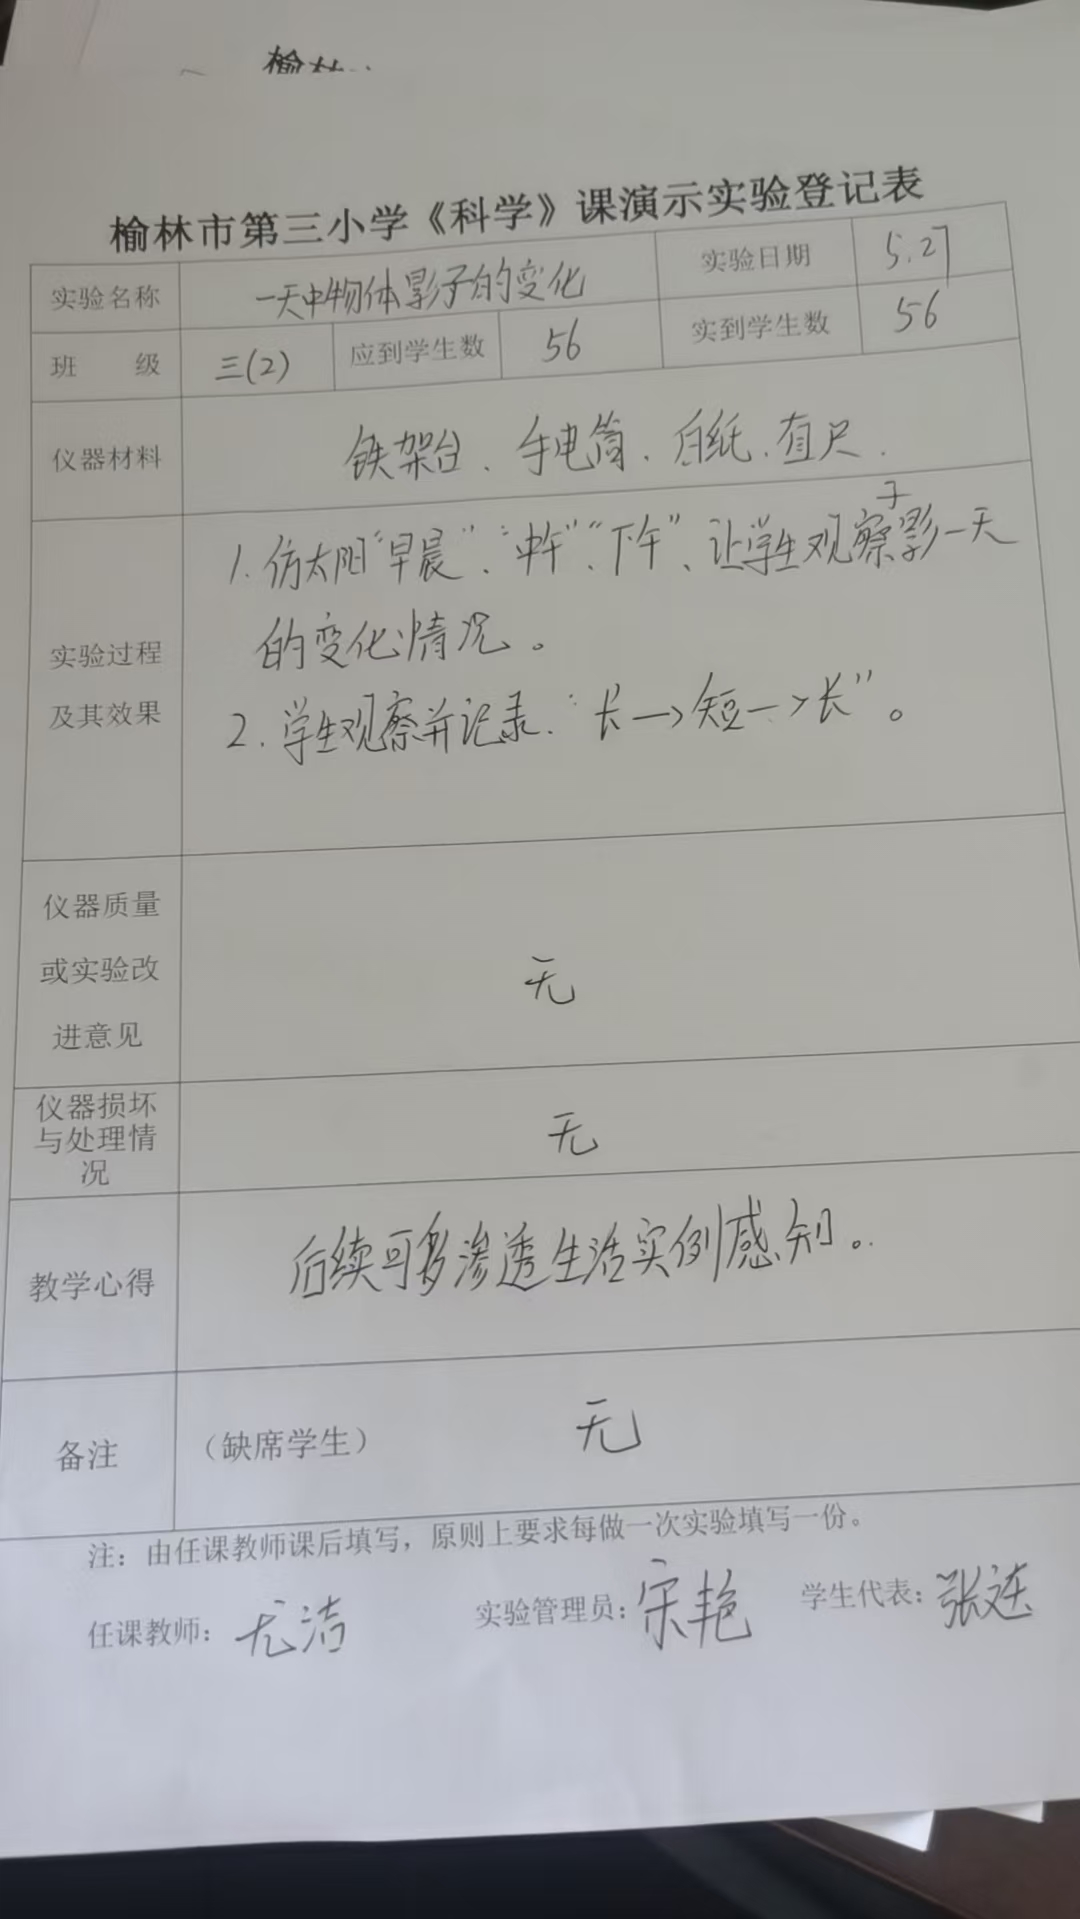 榆林
榆林市第三小学《科学》课演示实验登记表
实验名称 一天中物体影子的变化 实验日期 5.27
班 级 三(2) 应到学生数 56 实到学生数 56
仪器材料 铁架台、手电筒、白纸、直尺.
实验过程
及其效果
1. 仿太阳“早晨”、“中午”“下午”、让学生观察影子一天
的变化情况。
2. 学生观察并记录. “长—>短—>长”。
仪器质量
或实验改
进意见
无
仪器损坏
与处理情
况
无
教学心得 后续可多渗透生活实例感知。
备注 （缺席学生） 无
注：由任课教师课后填写，原则上要求每做一次实验填写一份。
任课教师：尤洁 实验管理员：宋艳 学生代表：张廷